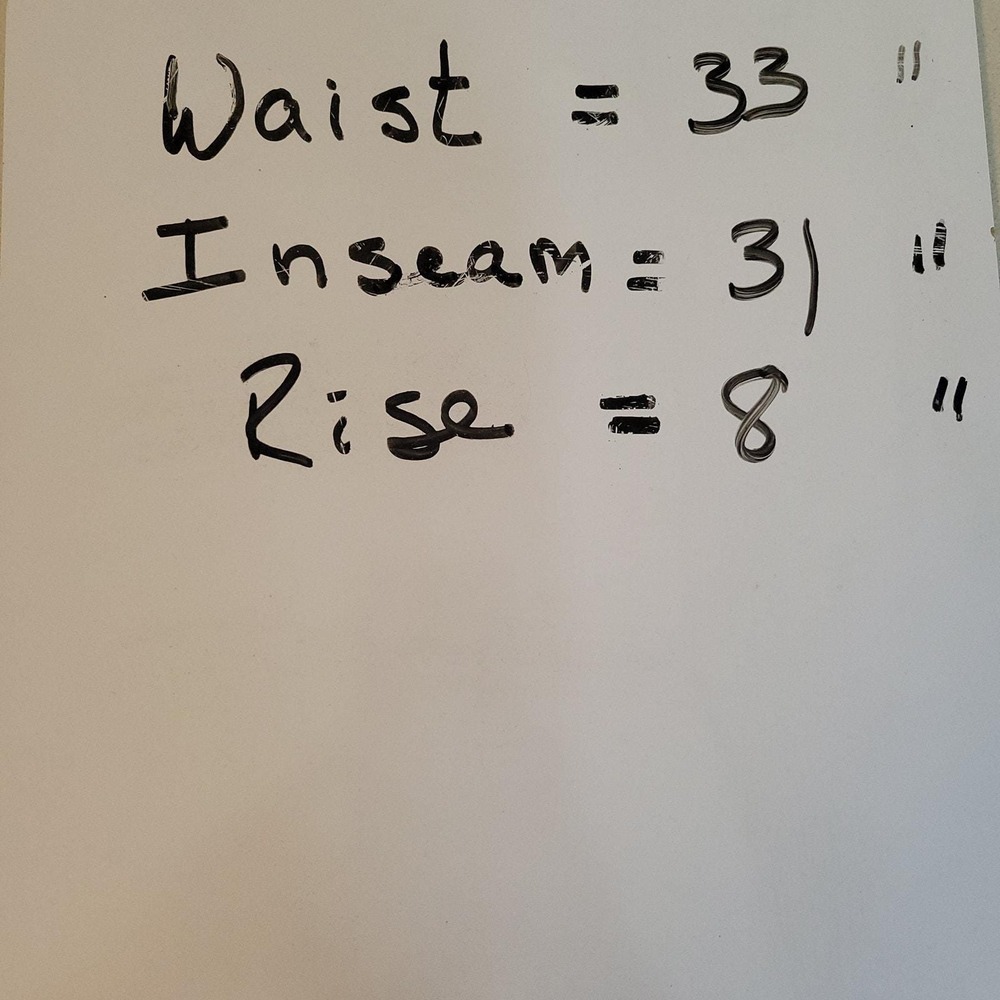 Waist = 33 "
Inseam = 31 "
Rise = 8 "